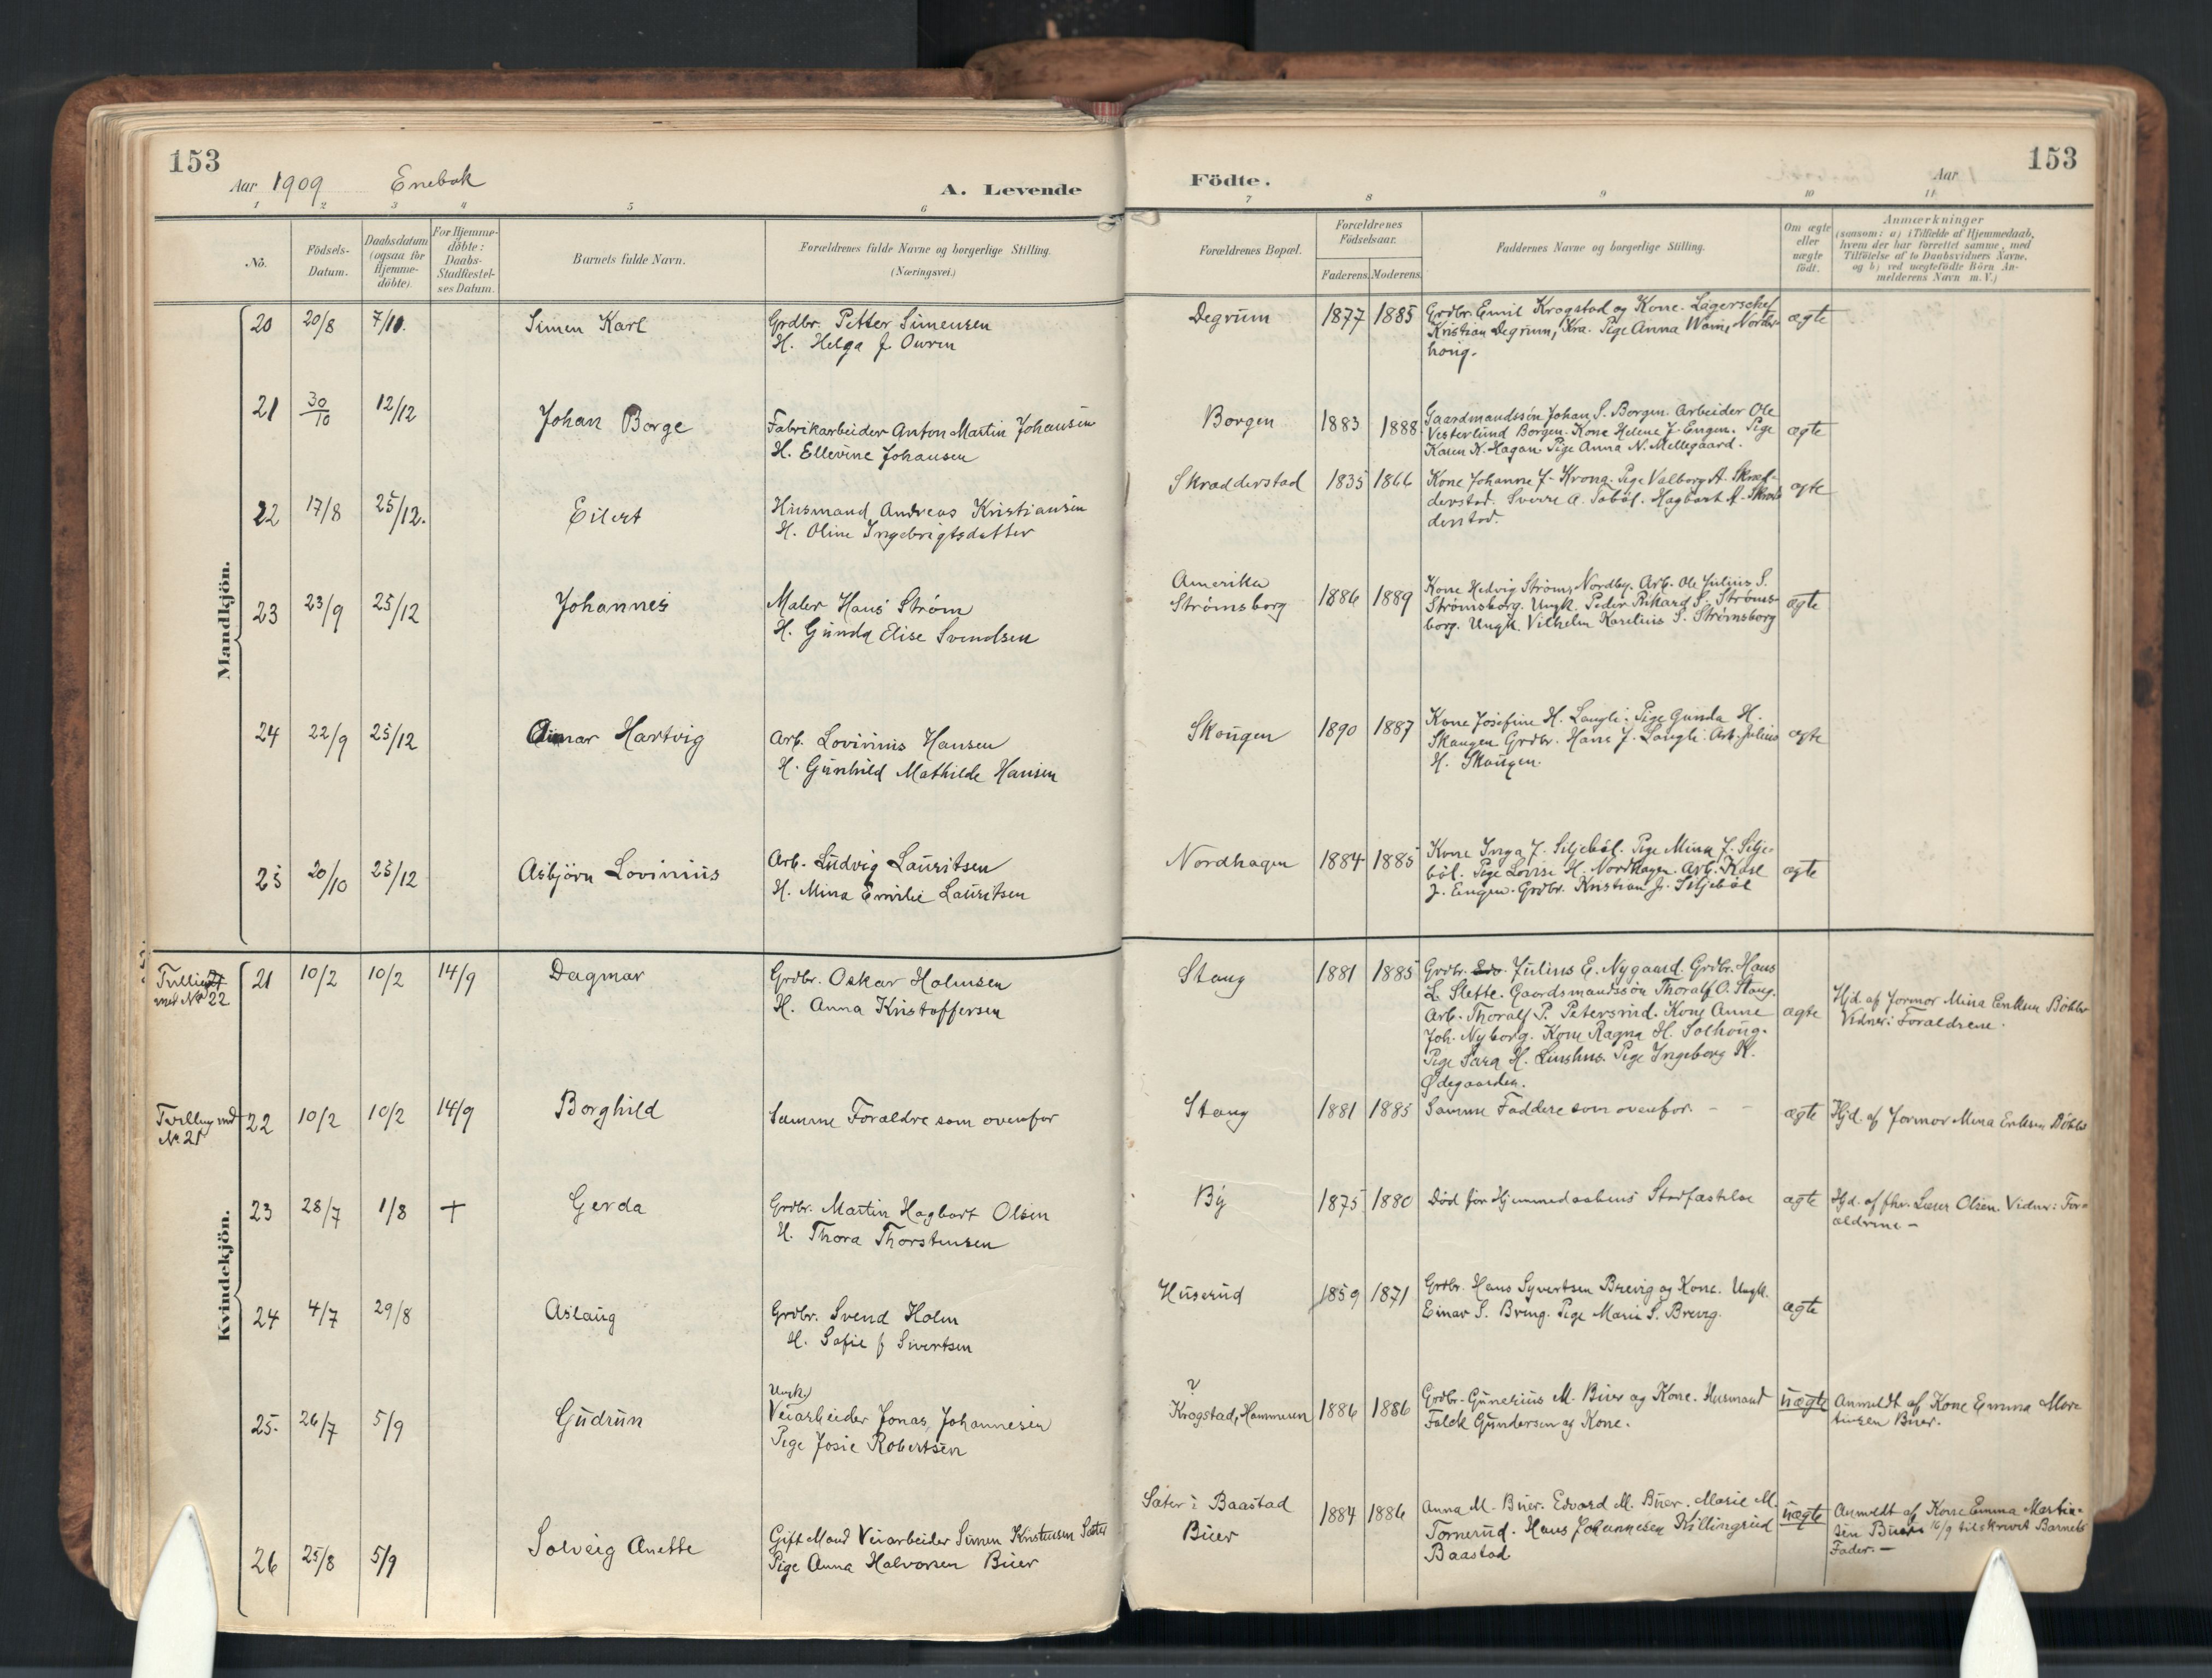 153
Aar 1909 Enebak
A. Levende
Födte.
Aar
153
1 2 3 4 5 6 7 8 9 10 11
No.
Födsels-
Datum.
Daabsdatum
(ogsaa for
Hjemme-
döbte).
For Hjemme-
döbte:
Daabs-
Stadfæstel-
ses Datum.
Barnets fulde Navn.
Forældrenes fulde Navne og borgerlige Stilling.
(Næringsvei.)
Forældrenes Bopæl.
Forældrenes
Födselsaar.
Faderens. Moderens.
Faddernes Navne og borgerlige Stilling.
Om ægte
eller
uægte
födt.
Anmærkninger
(saasom: a) i Tilfælde af Hjemmedaab,
hvem der har forrettet samme, med
Tilföielse af to Daabsvidners Navne,
og b) ved uægtefödte Börn An-
melderens Navn m. V.)
Mandkjön.
20 20/8 7/10. Simen Karl
Grdbr. Petter Simensen
H. Helga J. Ouren
Degrum 1877 1885
Grdbr. Emil Krogstad og Kone. Lagerschef
Kristian Degrum, Kra. Pige Anna
houg.
ægte
21 30/10 12/12 Johan Borge
Fabrikarbeider Anton Martin Johansen
H. Ellevine Johansen
Borgen 1883 1888
Gaardmandssøn Johan S. Borgen. Arbeider Ole
Vesterlund Borgen. Kone Helene J. Engen. Pige
Karen K. Hagan. Pige Anna N. Mellegaard.
ægte
22 17/8 25/12. Eilert
Husmand Andreas Kristiansen
H. Oline Ingebrigtsdatter
Skradderstad 1835 1866
Kone Johanne J. Krona. Pige Valborg A. Skræd-
derstad. Sverre A. Sabøl. Hagbart A. Skræd-
derstad.
ægte
23 23/9 25/12 Johannes
Maler Hans Strøm
H. Gunda Elise Svendsen
Amerika
Strømsborg 1886 1889
Kone Hedvig Strøm, Nordby. Arb. Ole Julius S.
Strømsborg. Ungk. Peder Rikard S. Strøms-
borg. Ungk. Vilhelm Karelius S. Strømsborg
ægte
24 22/9 25/12 Hartvig
Arb. Lovinius Hansen
H. Gunhild Mathilde Hansen
Skougen 1890 1887
Kone Josefine H. Langli. Pige Gunda H.
Skaugen Grdbr. Hans J. Langli. Arb. Julius
H. Skougen.
ægte
25 20/10 25/12 Asbjörn Lovinius
Arb. Ludvig Lauritsen
H. Mina Emilie Lauritsen
Nordhagen 1884 1885
Kone Inga J. Siljebøl. Pige Mina J. Silje-
bøl. Pige Lovise H. Nordhagen. Arb. Karl
J. Engen. Grdbr. Kristian J. Siljebøl
ægte
Kvindekjön.
Tvilling
med No 22
21 10/2 10/2 14/9 Dagmar
Grdbr. Oskar Holmsen
H. Anna Kristoffersen
Stang 1881 1885
Grdbr. Julius E. Nygaard. Grdbr. Hans
L. Slette. Gaardsmandssøn Thoralf O. Stang.
Arb. Thoralf P. Petersrud. Kone Anne
Joh. Nyborg. Kone Ragna H. Solhoug.
Pige Sara H. Linshus. Pige Ingeborg K.
Ødegaarden.
ægte
Hjd. af Jormor Mina Eriksen Böhler
Vidner: Forældrene.
Tvilling med
No. 21
22 10/2 10/2 14/9 Borghild
Samme Forældre som ovenfor
Stang 1881 1885
Samme Faddere som ovenfor. - -
ægte
Hjd. af Jormor Mina Eriksen Böhler
23 28/7 1/8 + Gerda
Grdbr. Martin Hagbart Olsen
H. Thora Thorstensen
By 1875 1880
Død før Hjemmedaabens Stadfæstelse
ægte
Hjd. af fhv. Læser Olsen. Vidner: For-
ældrene -
24 4/7 29/8 Aslaug
Grdbr. Svend Holm
H. Sofie J Sivertsen
Huserud 1859 1871
Grdbr. Hans Syvertsen Brevig og Kone. Ungk.
Einar S. Brevig. Pige Marie S. Brevig.
ægte
25. 26/7 5/9 Gudrun
Ungk.
Veiarbeider Jonas Johannesen
Pige Josie Robertsen
?
Krogstad, Hammeren 1886 1886
Grdbr. Gunerius M. Buer og Kone. Husmand
Falck Gundersen og Kone.
uægte
Anmeldt af Kone Emma Mar-
tinsen Buer.
26 25/8 5/9 Solveig Anette
Gift Mand Veiarbeider Simen Kristensen Sæter
Pige Anna Halvorsen Buer
Sæter i Baastad
Buer 1884 1886
Anna M. Buer. Edvard M. Buer. Marie M.
Tornerud. Hans Johannesen Killingrud
Baastad
uægte
Anmeldt af Kone Emma Martin-
sen Buer 16/9 tilskrevet Barnets
Fader. -